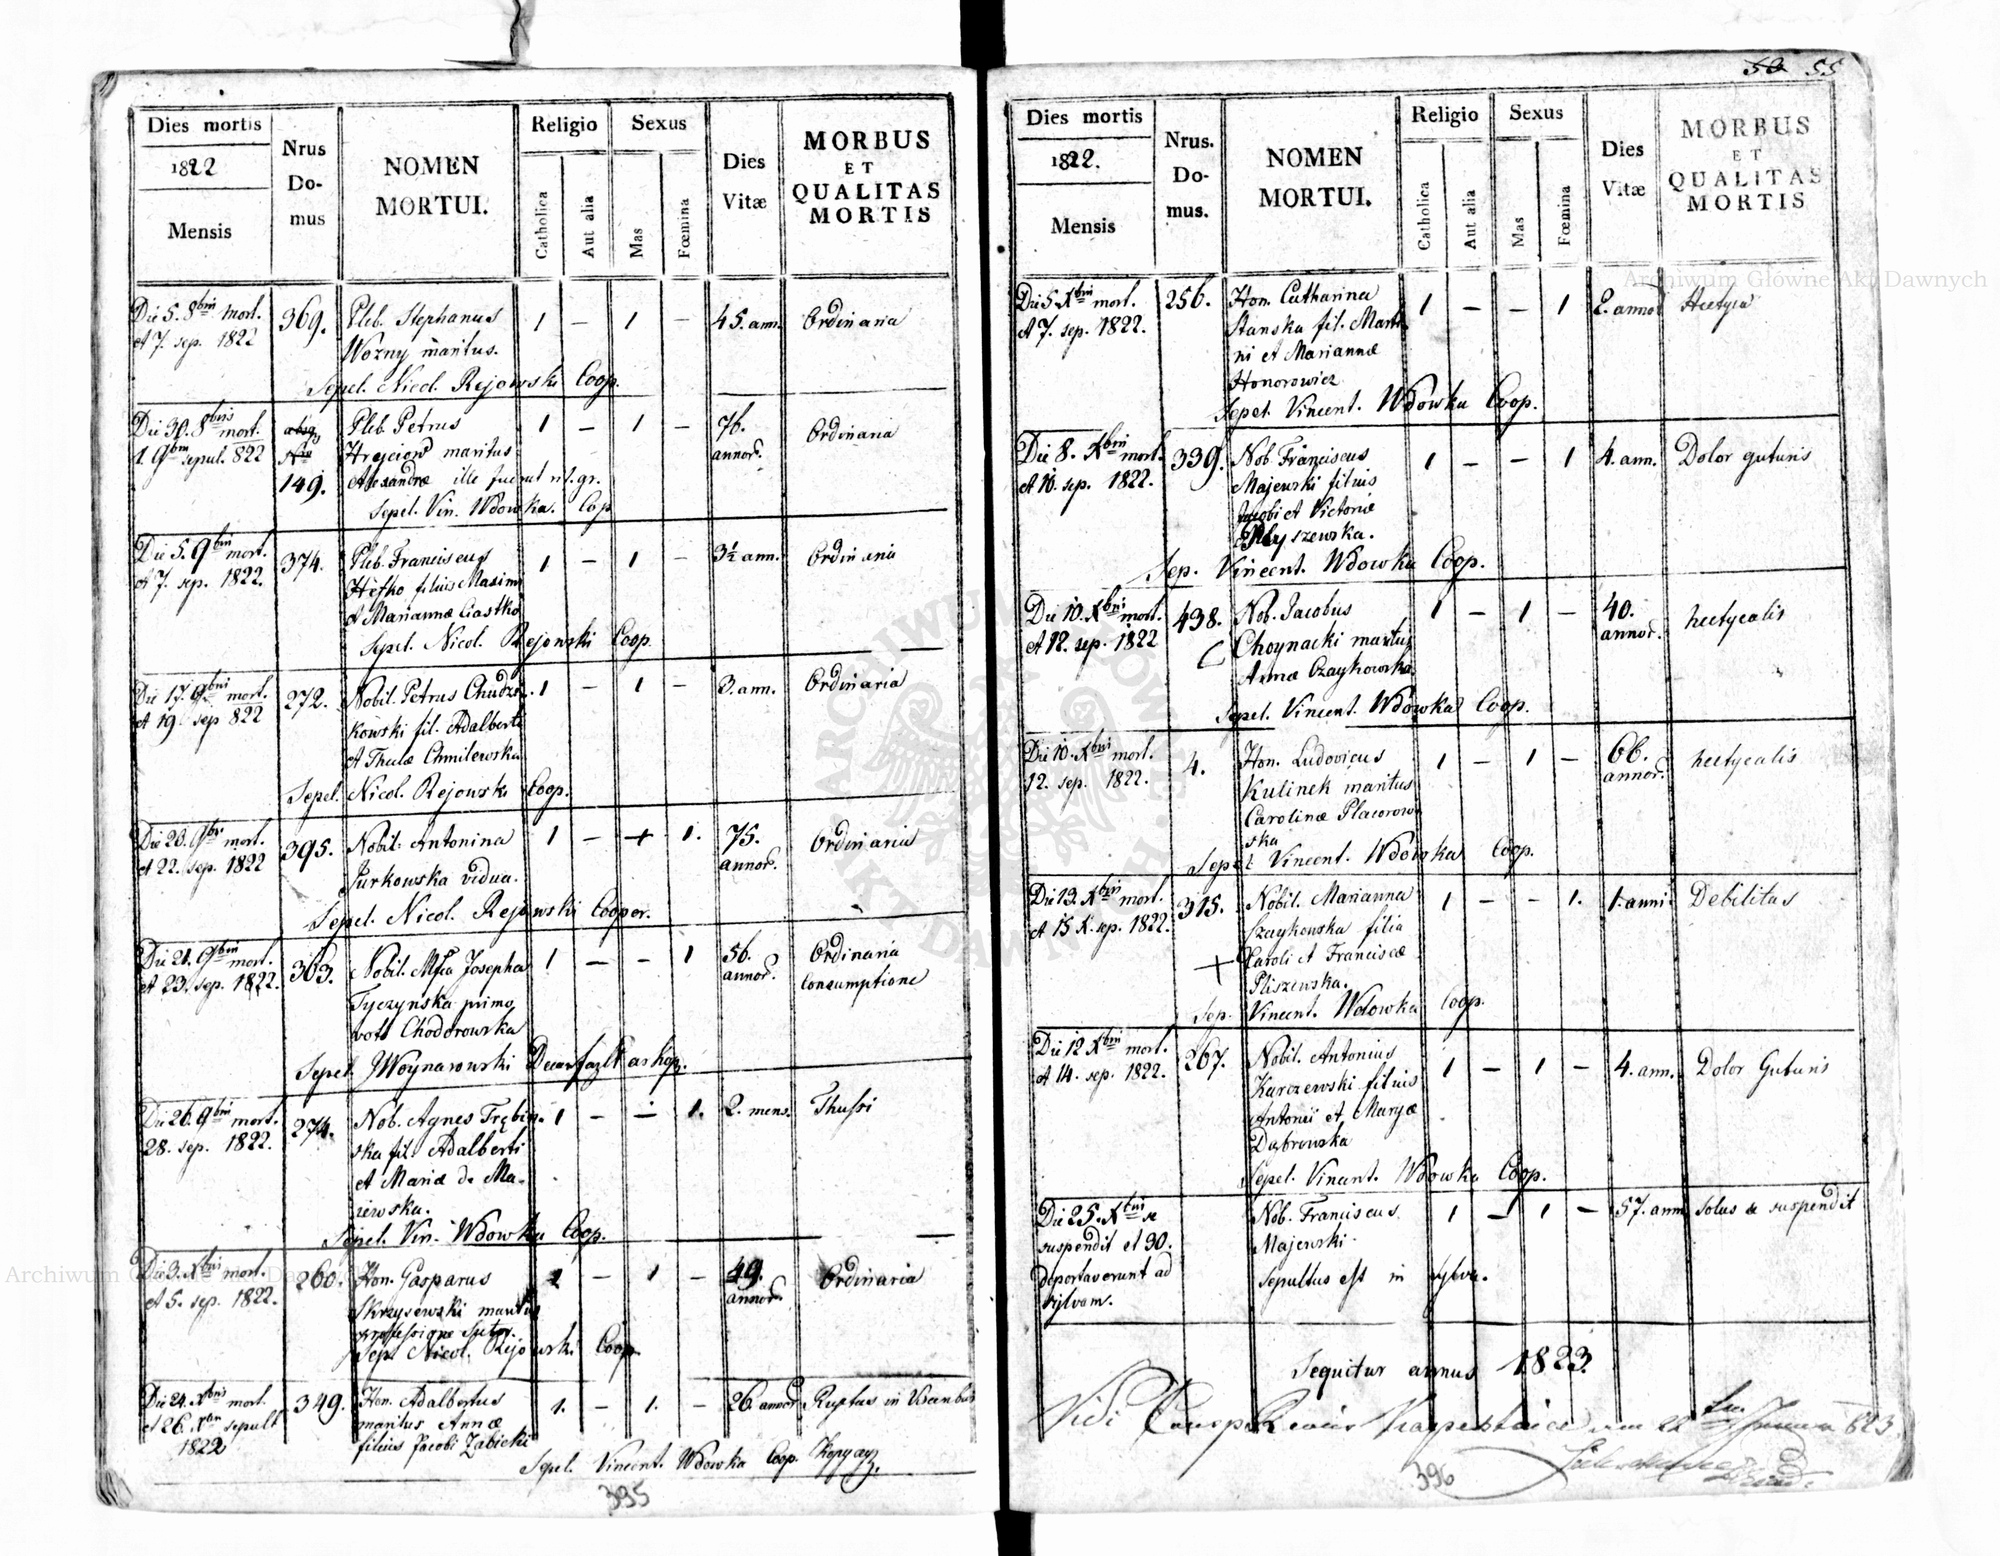 Dies mortis
1822
Mensis
Nrus
Do-
mus
NOMEN
MORTUI.
Religio
Catholica
Aut alia
Sexus
Mas
Fœmina
Dies
Vitæ
MORBUS
ET
QUALITAS
MORTIS
Die 5. 8bris mort. 369. Pleb. Stephanus 1 – 1 – 45. ann. Ordinaria
et 7. sep. 1822 Wozny maritus.
Sepel. Nicol. Rejowski Coop.
Die 30. 8bris mort. Pleb. Petrus 1 – 1 – 76. Ordinaria
1. 9bris sepul. 822 Nro maritus annor.
149. Alexandræ ille fuerat rit. gr.
Sepel. Vin. Wdowka. Cop
Die 5. 9bris mort. 374. Pleb. Franciscus 1 – 1 – 3½ ann. Ordinaria
et 7. sep. 1822. Hefko filius Maximi
et Mariannæ Ciastko
Sepel. Nicol. Rejowski Coop.
Die 17. 9bris mort. 272. Nobil. Petrus Chudzi- 1 – 1 – 3. ann. Ordinaria
et 19. sep 822 kowski fil. Adalberti
et Theclæ Chmilewska
Sepel. Nicol. Rejowski Coop.
Die 20. 9bris mort. 395. Nobil. Antonina 1 – + 1. 75. Ordinaria
et 22. sep. 1822 Jurkowska vidua. annor.
Sepel. Nicol. Rejowski Cooper.
Die 21. 9bris mort. 363. Nobil. Mfca Josepha 1 – – 1 56. Ordinaria
et 23. sep. 1822. Tyczynska primo annor. Consumptione
voto Chodorowska
Sepel. J Woynarowski
Die 26. 9bris mort. 274. Nob. Agnes Trębin- 1 – – 1. 2. mens. Thussi
28. sep. 1822. ska fil. Adalberti
et Mariæ de Ma-
iewska.
Sepel. Vin. Wdowka Coop.
Die 3. Xbris mort. 260. Hon. Gasparus 1 – 1 – 49. Ordinaria
et 5. sep. 1822. Skrzysewski maritus annor.
professione Sutor.
Sep. Nicol. Rejowski Coop.
Die 24. Xbris mort. 349. Hon. Adalbertus 1. – 1. – 26. annor. Ruptus in
et 26. Xbris sepult maritus Annæ
1822 filius Jacobi Zabicki
Sepel. Vincent. Wdowka Coop.
395
50 55
Dies mortis
1822.
Mensis
Nrus.
Do-
mus.
NOMEN
MORTUI.
Religio
Catholica
Aut alia
Sexus
Mas
Fœmina
Dies
Vitæ
MORBUS
ET
QUALITAS
MORTIS
Die 5 Xbris mort. 256. Hon. Catharina 1 – – 1 2. annor Hectyca
et 7. sep. 1822. Stanska fil. Marti
ni et Mariannæ
Honorowicz
Sepel. Vincent. Wdowka Coop.
Die 8. Xbris mort. 339. Nob. Franciscus 1 – – 1 4. ann. Dolor guturis
et 10. sep. 1822. Majewski filius
Jacobi et Victoriæ
Plyszewska.
Sep. Vincent. Wdowka Coop.
Die 10. Xbris mort. 438. Nob. Jacobus 1 – 1 – 40. hectycalis
et 12. sep. 1822 Choynacki maritus annor.
Annæ Czaykowska
Sepel. Vincent. Wdowka Coop.
Die 10. Xbris mort. 4. Hon. Ludovicus 1 – 1 – 66. hectycalis
12. sep. 1822. Kulinek maritus annor.
Carolinæ Placorow
ska
Sepel. Vincent. Wdowka Coop.
Die 13. Xbris mort. 315. Nobil. Marianna 1 – – 1. 1. anni Debilitas
et 15 X. sep. 1822. Czaykowska filia
+ Caroli et Franciscæ
Pliszewska.
Sep. Vincent. Wdowka Coop.
Die 12 Xbris mort. 267. Nobil. Antonius 1 – 1 – 4. ann. Dolor Guturis
et 14. sep. 1822. Karczewski filius
Antonii et Maryæ
Dąbrowska
Sepel. Vincent. Wdowka Coop.
Die 25. Xbris se Nob. Franciscus 1 – 1 – 57. ann. solus se suspendit
suspendit et 30. Majewski.
deportaverunt ad sepultus est in sylva.
sylvam.
Sequitur annus 1823.
Vidi
396
Archiwum Główne Akt Dawnych